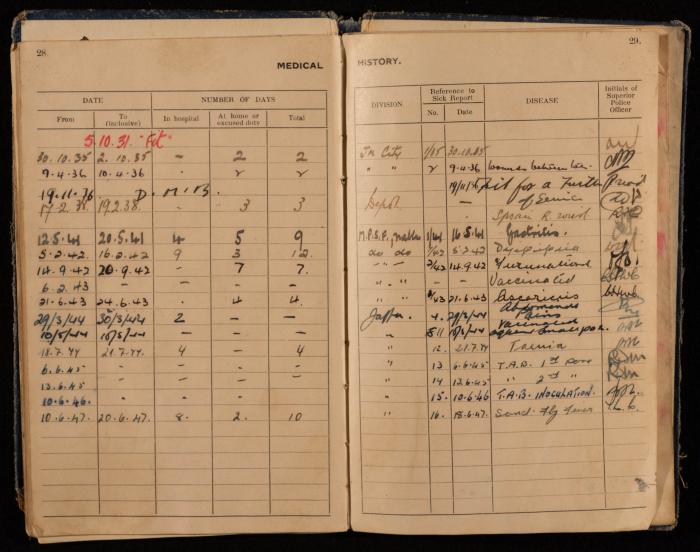 28.
MEDICAL
DATE NUMBER OF DAYS
From To (inclusive) In hospital At home or excused duty Total
5.10.31. "Fit"
30.10.35 2.10.35 - 2 2
9.4.36 10.4.36 - 2 2
19.11.36 D.M.B.
17.2.38. 19.2.38. 3 3
12.5.41 20.5.41 4 5 9
5.2.42. 16.2.42 9 3 12.
14.9.42 20.9.42 - 7 7.
6.2.43 - - - -
21.6.43 24.6.43 . 4 4.
29/3/44 30/3/44 2 - -
10/5/44 10/5/44 - - -
18.7.44 21.7.44. 4 - 4
6.6.45 - - - -
13.6.45 - - -
10.6.46. - - - -
10.6.47. 20.6.47. 8. 2. 10
29.
HISTORY.
DIVISION Reference to Sick Report DISEASE Initials of Superior Police Officer
No. Date
Jm City 1/35 30.10.35
" " 2 9.4.36 wound between
19/11/36 Fit for a further period
of Service
Depot Sprain R. wrist
M.P.S.F., 1/41 16.5.41 Gastritis.
do do 1/42 5.2.42 Dyspepsia
2/42 14.9.42
" " - Vaccinated
" " 6/43 21.6.43 Ascariasis
Jaffa. 4. 29/3/44 Abdominal Pains
" 5.11 10/5/44 Vaccinated against Smallpox.
" 12. 21.7.44 Taenia
" 13 6.6.45 T.A.B. 1st Dose
" 14 13.6.45 " 2nd "
" 15. 10.6.46 T.A.B. INOCULATION.
" 16. 18.6.47. Sand-fly fever